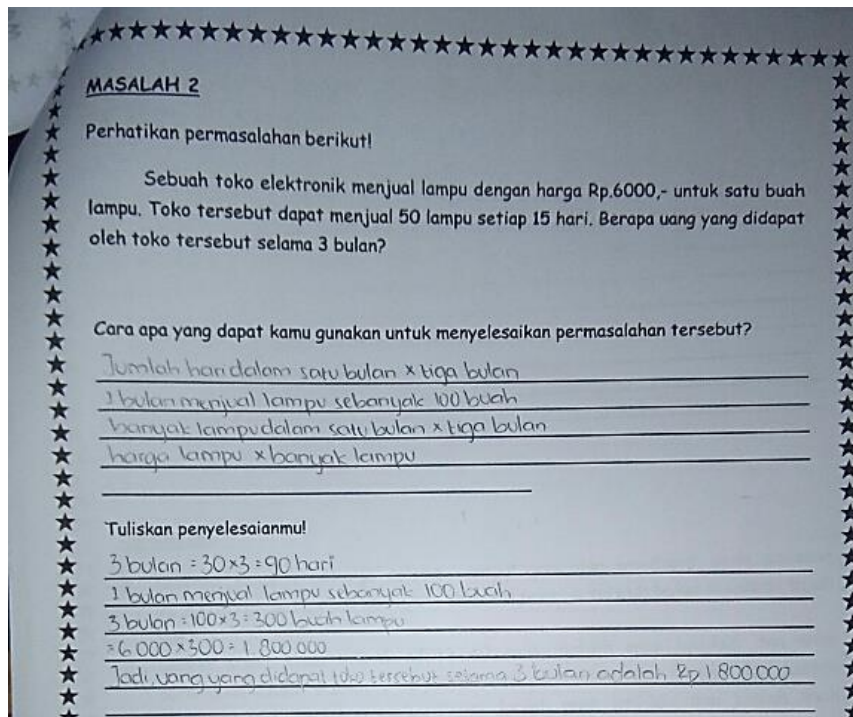 MASALAH 2
Perhatikan permasalahan berikut!
Sebuah toko elektronik menjual lampu dengan harga Rp.6000,- untuk satu buah
lampu. Toko tersebut dapat menjual 50 lampu setiap 15 hari. Berapa uang yang didapat
oleh toko tersebut selama 3 bulan?
Cara apa yang dapat kamu gunakan untuk menyelesaikan permasalahan tersebut?
Jumlah hari dalam satu bulan × tiga bulan
1 bulan menjual lampu sebanyak 100 buah
banyak lampu dalam satu bulan × tiga bulan
harga lampu × banyak lampu
Tuliskan penyelesaianmu!
3 bulan = 30×3 = 90 hari
1 bulan menjual lampu sebanyak 100 buah
3 bulan = 100×3 = 300 buah lampu
= 6.000 × 300 = 1.800.000
Jadi, uang yang didapat toko tersebut selama 3 bulan adalah Rp 1.800.000